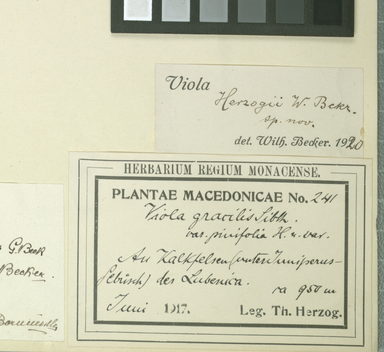 Viola
Herzogii W. Bckr.
sp. nov.
det. Wilh. Becker. 1920
HERBARIUM REGIUM MONACENSE.
PLANTAE MACEDONICAE No. 241
Viola gracilis Sibth.
var. pinifolia H. n. var.
An Kalkfelsen (unter Juniperus-
Gebüsch) des Lubenica. ca 950 m
Juni 1917. Leg. Th. Herzog.
G. Beck
Becker.
Bornmüller